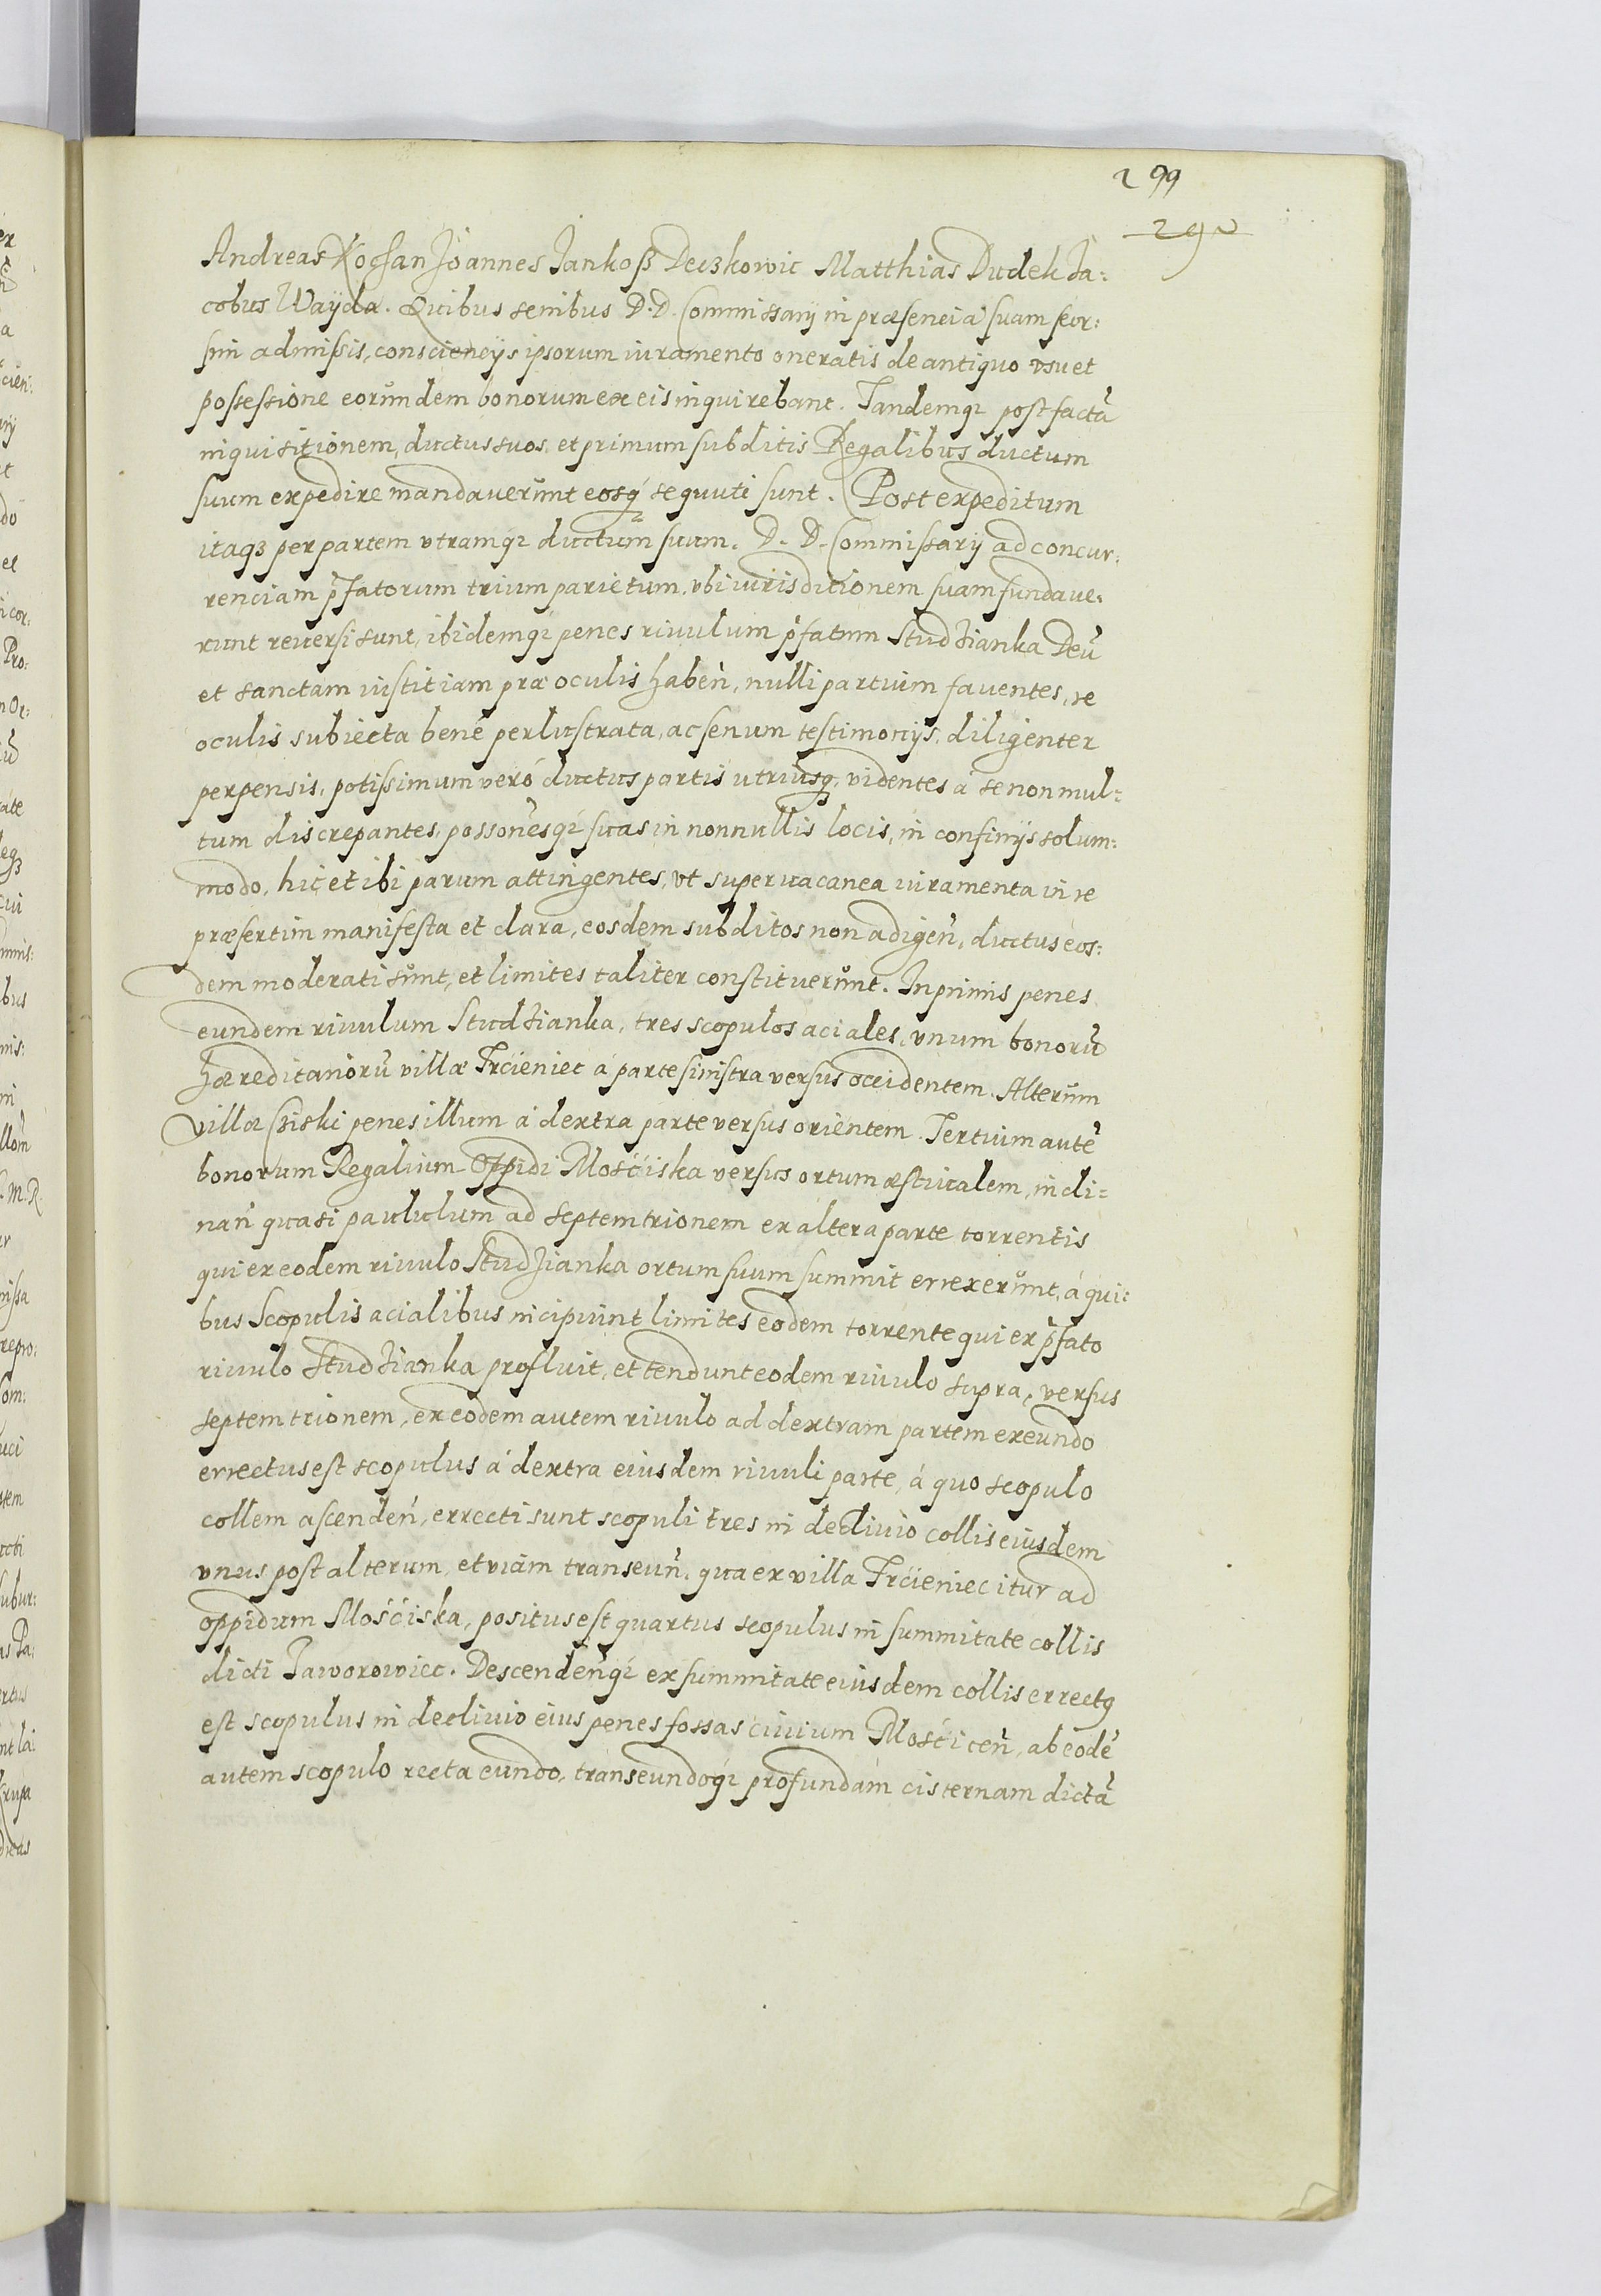 299
290
Andreas Kochan Joannes Jankoß Deczkowic Matthias Dudek Ja:
cobus Wayda. Quibus senibus D. D. Commissarij in præsenciã suam seor:
sim admissis, consciencijs ipsorum iuramento oneratis de antiquo vsu et
possessione eorŭndem bonorum ex eis inquirebant. Tandemq; post factã
inquisitionem, ductus suos, et primum subditis Regalibus ductum
suum expedire mandauerŭnt eosq; sequuti sunt. Post expeditum
itaq; per partem vtramq; ductŭm suum. D. D. Commissarij ad concur:
renciam p̃fatorum trium parietum, vbi iurisditionem suam fundaue:
runt reuersi sunt, ibidemq; penes riuulum p̃fatum Studzianka Deũ
et sanctam iustitiam præ oculis habeñ, nulli partium fauentes, re
oculis subiecta bené perlustrata, ac senum testimonijs, diligenter
perpensis, potissimum veró ductus partis utriusq;, videntes á se non mul=
tum discrepantes, possoñesq; suas in nonnullis locis, in confinijs solum:
modo, hic et ibi parum attingentes, vt superuacanea iuramenta in re
præsertim manifesta et clara, eosdem subditos non adigeñ, ductus eos:
dem moderati sŭnt, et limites taliter constituerŭnt. Inprimis penes
eundem riuulum Studzianka, tres scopulos aciales, vnum bonorũ
hæreditariorũ villæ Trcieniec á parte sinistra versus occidentem. Alterŭm
villæ Cziski penes illum á dextra parte versus orientem. Tertium autẽ
bonorum Regalium Oppidi Mościska versus ortum æstiualem, incli=
nañ quasi paululum ad septemtrionem ex altera parte torrentis
qui ex eodem riuulo Studzianka ortum suum summit errexerŭnt, á qui:
bus Scopulis acialibus incipiunt limites eodem torrente qui ex p̃fato
riuulo Studzianka profluit, et tendunt eodem riuulo supra, versus
septemtrionem, ex eodem autem riuulo ad dextram partem exeundo
errectus est scopulus á dextra eiusdem riuuli parte, á quo scopulo
collem ascendeñ, errecti sunt scopuli tres in decliuio collis eiusdem
vnus post alterum, et viam transeuñ, qua ex villa Trcieniec itur ad
oppidum Mościska, positus est quartus scopulus in summitate collis
dicti Jaworowiec. Descendeñq; ex summitate eiusdem collis errectq
est scopulus in decliuio eius penes fossas ciuium Mościceñ, ab eodẽ
autem scopulo recta eundo, transeundoq; profundam cisternam dictã